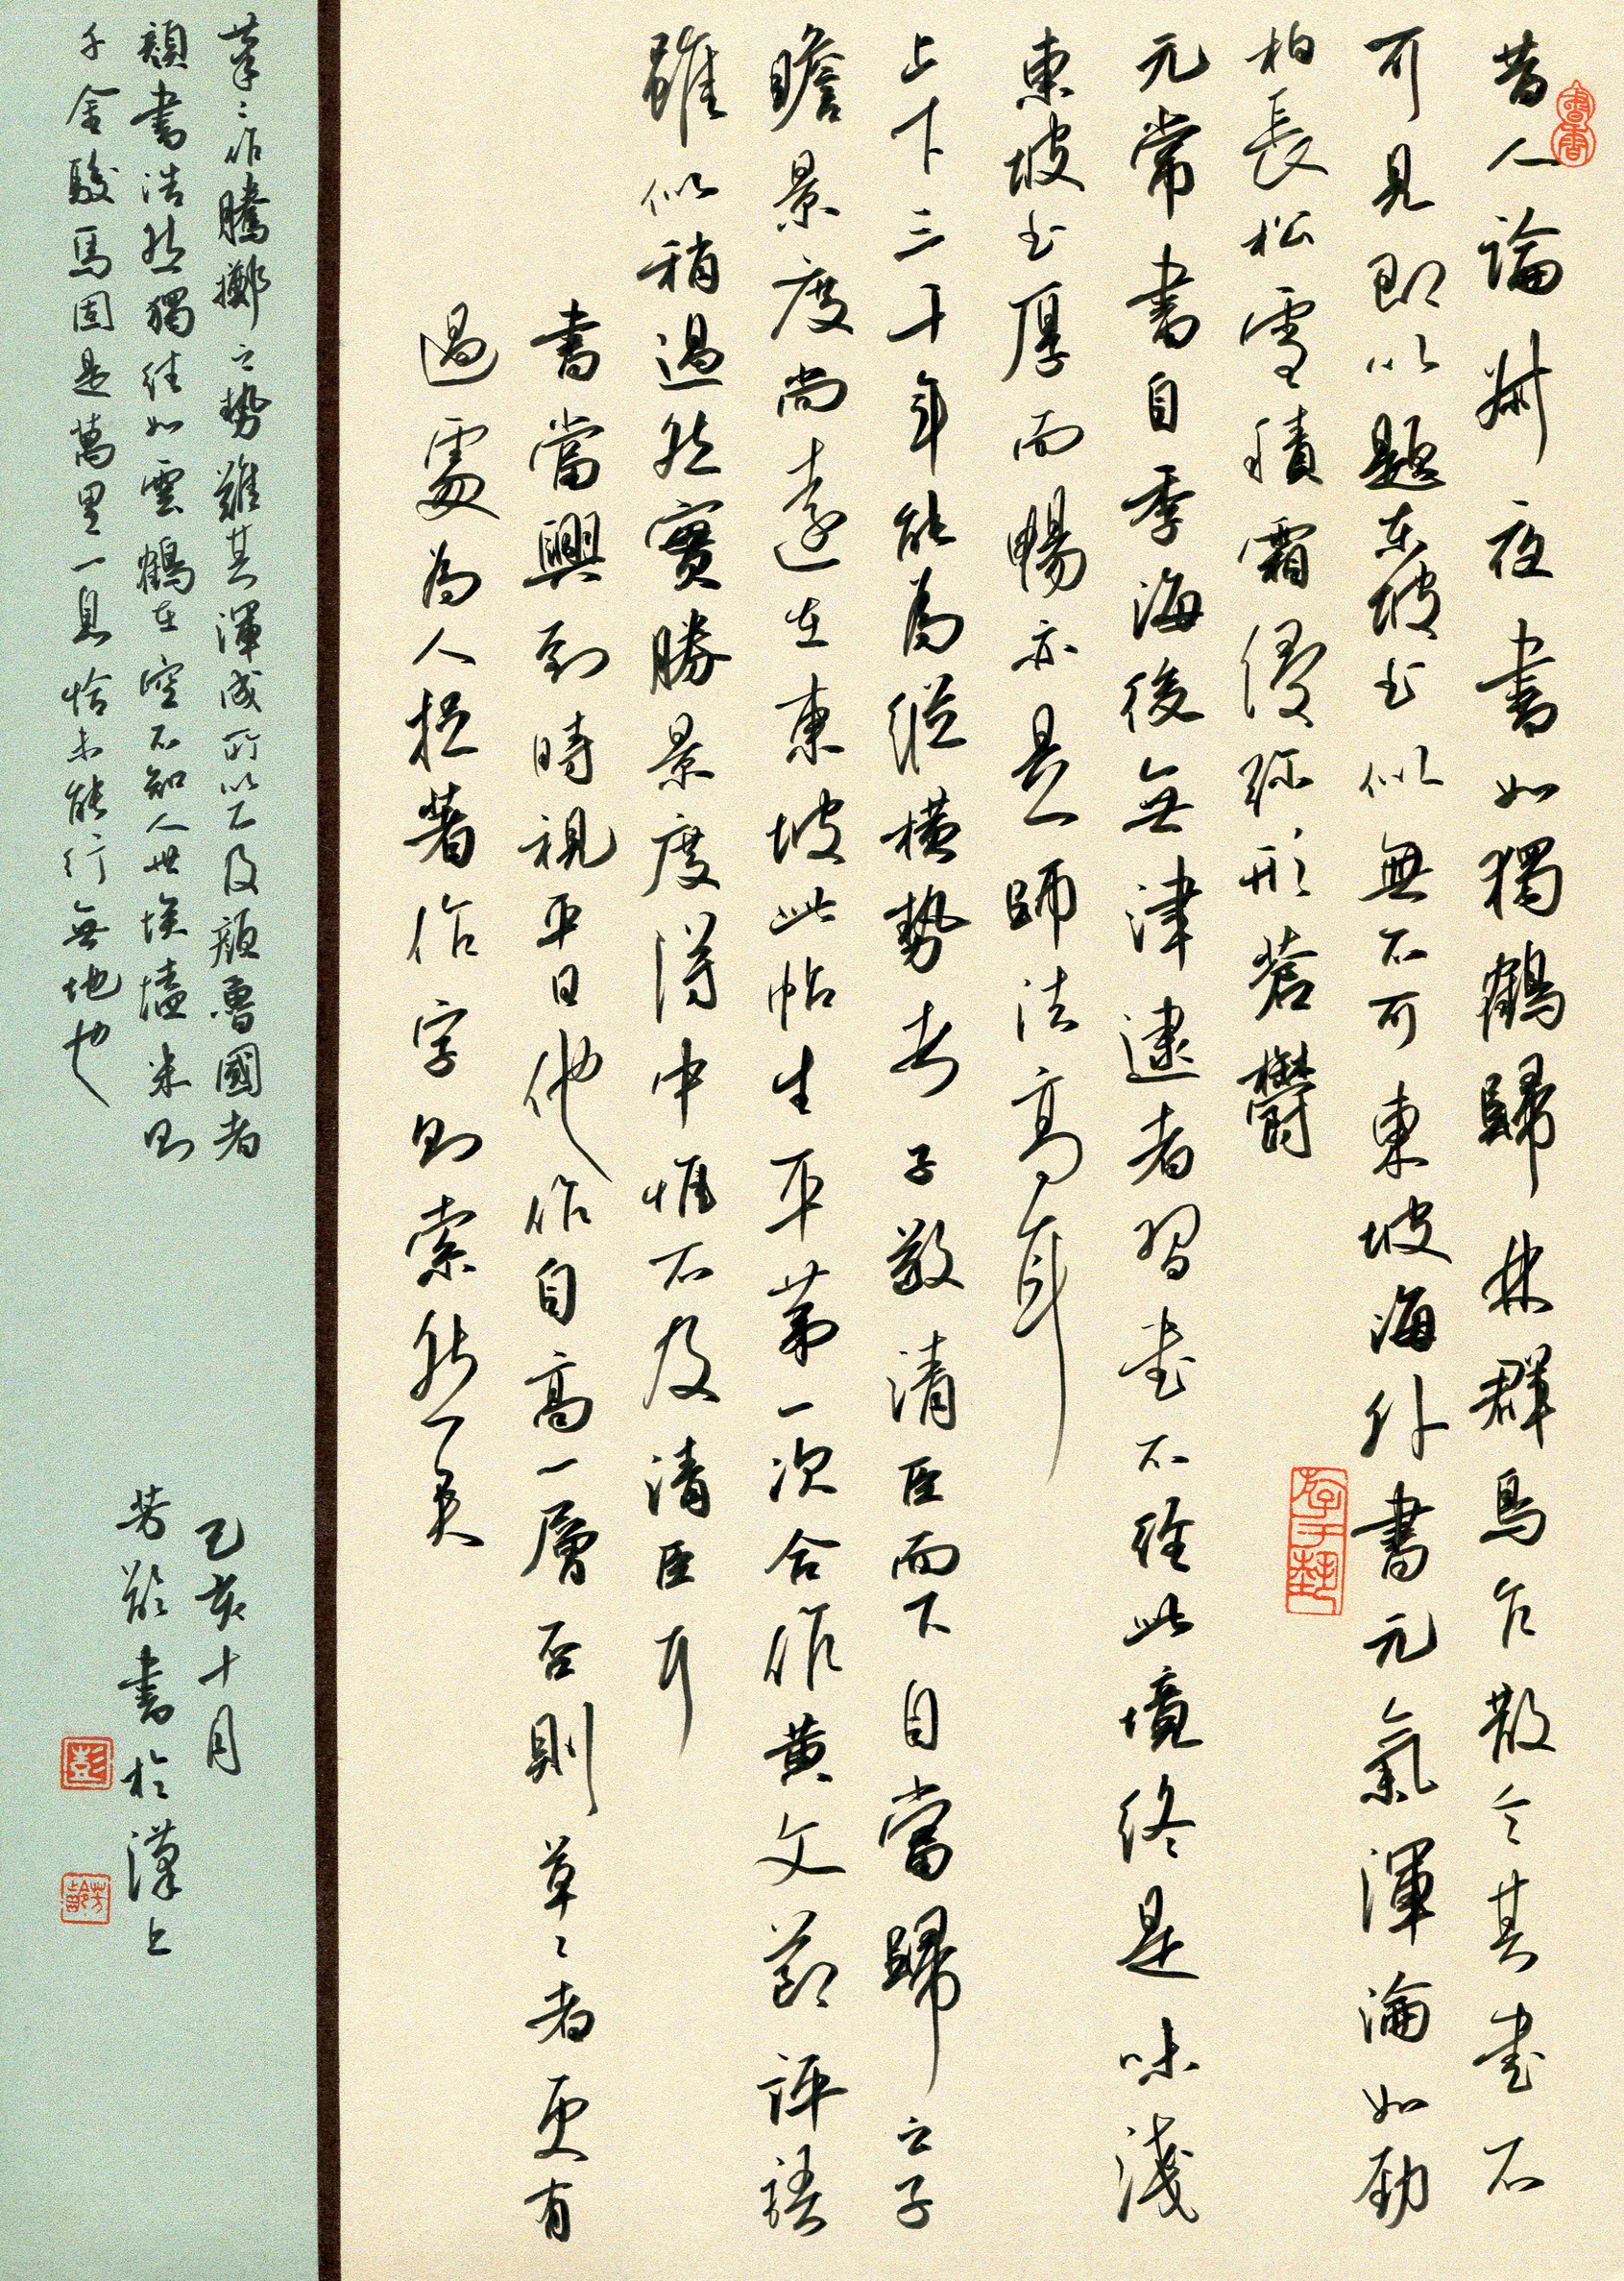 昔人論叔夜書如獨鶴歸林群鳥乍散今其書不
可見即以題東坡书似無不可東坡海外書元氣渾淪如勁
柏長松雪積霜侵殊形蒼欝
元常書自季海後無津逮者習書不経此境終是味淺
東坡书厚而暢亦是師法高耳
上下三千年能為縱橫勢者子敬清臣而下自當歸之子
瞻景度尚遠在東坡此帖生平第一次合作黄文節評語
雖似稍過然實勝景度得中惟不及清臣耳
書當興到時視平日他作自高一層否則草〻者更有
過處為人促著作字則索然一矣
筆〻作騰擲之勢難其渾成所以不及顔魯國者
顔書浩然獨往如雲鶴在空不知人世埃壒米則
千金駿馬固是萬里一息恰未能行無地也
己亥十月
芳齡書於漢上
彭
芳齡